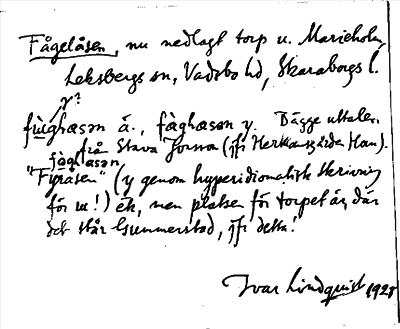 Fågelåsen, nu nedlagt torp u. Marieholm,
Leksbergs sn, Vadsbo hd, Skaraborgs l.
y?
fùghæsən ä., fàghæsən y. Bägge uttalen
från Stava Jonson (jfr
fàglåsən,
"Fyråsen" (y genom hyperidiomatisk skrivning
för u!) ek, men platsen för torpet är, där
det står Gunnerstad, jfr detta!
Ivar Lindquist 1928